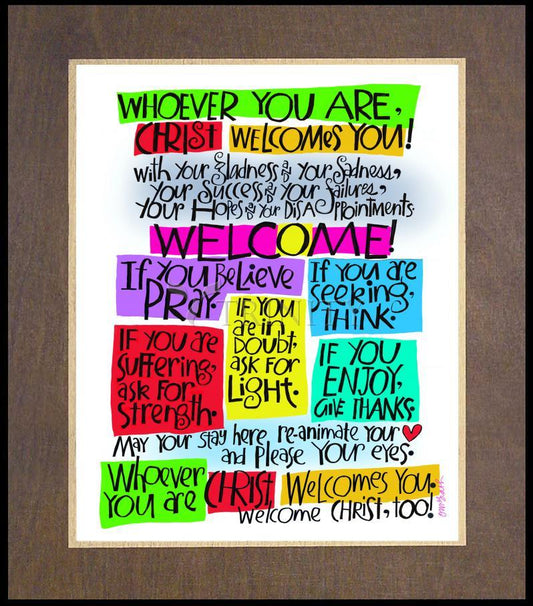 WHOEVER YOU ARE,
CHRIST WELCOMES YOU!
with Your Gladness and Your Sadness,
Your Success and Your Failures,
Your Hopes and Your DISAppointments.
WELCOME!
If YOU BeLieve
PRAY.
If you are
seeking,
THINK.
IF YOU
are in
Doubt,
ask for
Light.
IF YOU are
suffering,
ask for
strength.
IF YOU
ENJOY,
GIVE THANKS.
May Your stay here re-animate Your ♥
and Please Your eyes.
Whoever
YOU are CHRIST Welcomes You.
Welcome CHRIST, too!